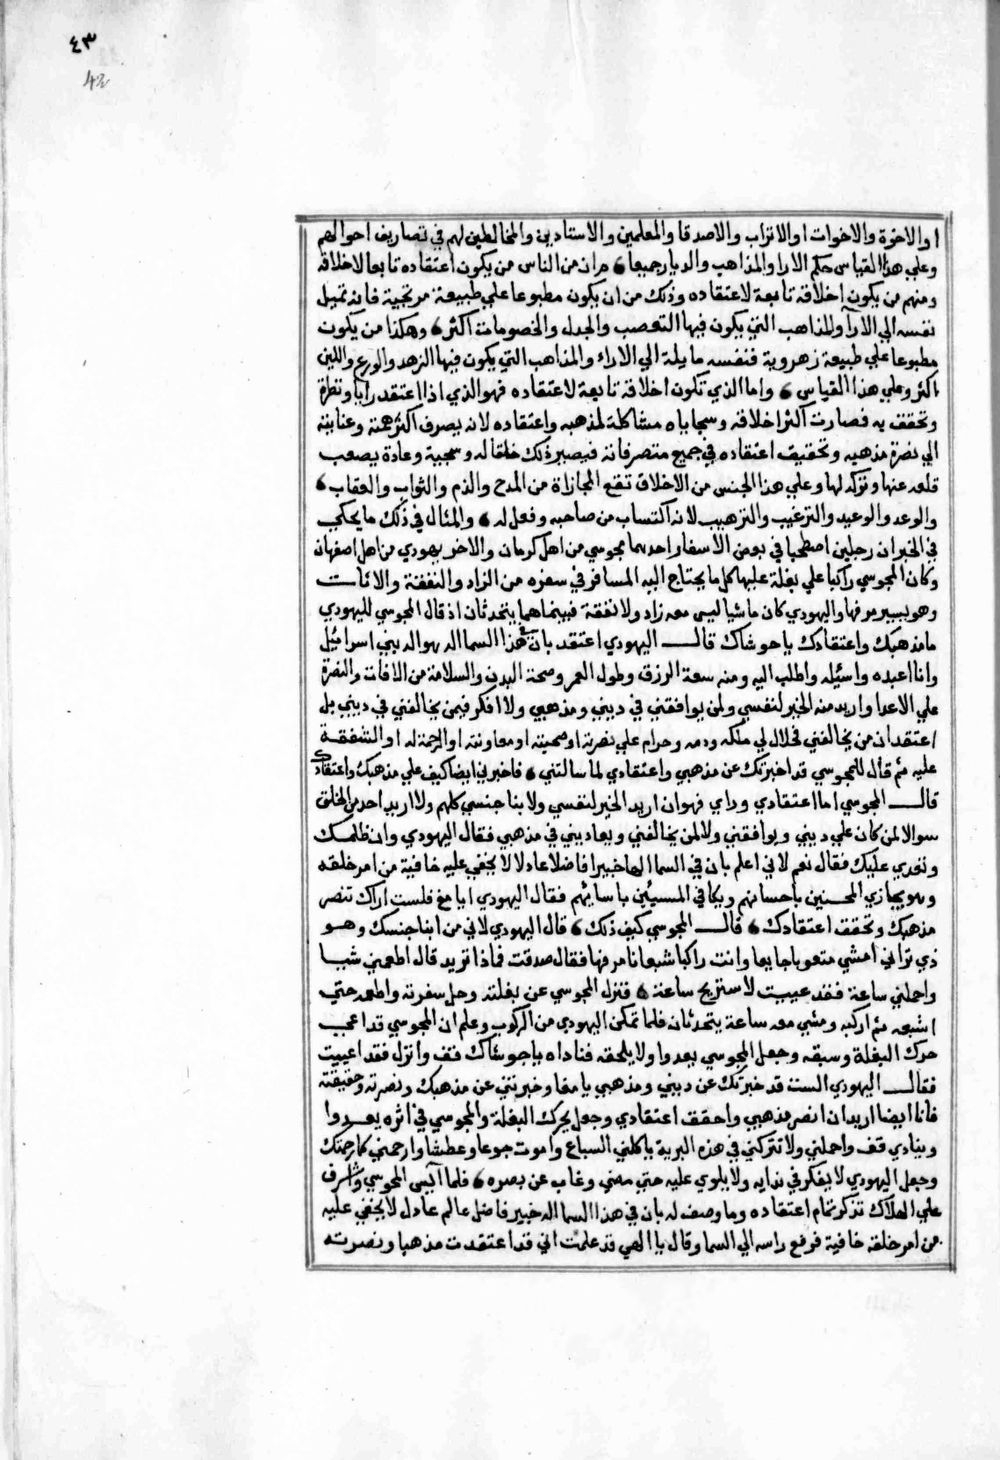 ٤٣
42
او الاخوة والاخوات او الاتراب والاصدقا والمعلمين والاستادين والمخالطين لهم في تصاريف احوالهم
وعلي هذا القياس حكم الارا والمذاهب والديار جميعا من ان من الناس من يكون اعتقاده تابعا لاخلاقه
ومنهم من يكون اخلاقه تابعة لاعتقاده وذلك من ان يكون مطبوعا علي طبيعة مريخية فانه تميل
نفسه الي الارآ والمذاهب التي يكون فيها التعصب والجدل والخصومات اكثر وهكذا من يكون
مطبوعا علي طبيعة زهروية فنفسه مايلة الي الاراء والمذاهب التي يكون فيها الزهد والورع واللين
اكثر وعلي هذا القياس واما الذي تكون اخلاقه تابعة لاعتقاده فهو الذي اذا اعتقد رايا ونظرة
وتحقق به فصارت اكثر اخلاقه وسجاياه مشاكلة لمذهبه واعتقاده لانه يصرف اكثر همة وعنايته
الي نصرة مذهبه وتحقيق اعتقاده في جميع متصرفاته فيصير ذلك خلقا له وسجية وعادة يصعب
قلعه عنها وتركه لها وعلي هذا الجنس من الاخلاق تقع المجازاة من المدح والذم والثواب والعقاب
والوعد والوعيد والترغيب والترهيب لانه اكتساب من صاحبه وفعل له والمثال في ذلك ما يحكي
في الخبر ان رجلين اصطحبا في يومن الاسفار احدهما مجوسي من اهل كرمان والاخر يهودي من اهل اصفهان
وكان المجوسي راكبا علي بغلة عليها كل ما يحتاج اليه المسافر في سفره من الزاد والنفقة والاثاث
وهو يسير مرفها واليهودي كان ماشيا ليس معه زاد ولا نفقة فبينماهما يتحدثان اذ قال المجوسي لليهودي
ما مذهبك واعتقادك يا خوشاك قال اليهودي اعتقد بان في هذا السما اله هو اله بني اسرائيل
وانا اعبده واسئله واطلب اليه ومنه سعة الرزق وطول العمر وصحة البدن والسلامة من الافات والنصرة
علي الاعدا واريد منه الخير لنفسي ولمن يوافقني في ديني ومذهبي ولا افكر فيمن يخالفني في ديني بل
اعتقد ان من يخالفني فحلال لي ملكه ودمه وحرام علي نصرته او صحبته او معاونته او الرحمة له او الشفقة
عليه ثم قال للمجوسي قد اخبرتك عن مذهبي واعتقادي لما سالتني فاخبرني ايضا كيف علي مذهبك واعتقادك
قال المجوسي اما اعتقادي وراي فهو ان اريد الخير لنفسي ولابنا جنسي كلهم ولا اريد احد من الخلق
سوا لا لمن كان علي ديني ويوافقني ولا لمن يخالفني ويعاديني في مذهبي فقال اليهودي وان ظلمك
وتعدي عليك فقال نعم لاني اعلم بان في السما الها خبيرا فاضلا عادلا لا يخفي عليه خافية من امر خلقه
وهو يجازي المحسنين باحسانهم ويكافي المسيئن باسائهم فقال اليهودي ايا مغ فلست اراك تنصر
مذهبك وتحقق اعتقادك قال المجوسي كيف ذلك قال اليهودي لاني من ابنا جنسك وهو
ذي تراني امشي متعوبا جايعا وانت راكبا شبعانا مرفها فقال صدقت فماذا تريد قال اطعمني شبا
واحملني ساعة فقد عييت لاستريح ساعة فنزل المجوسي عن بغلته وحل سفرته واطعمه حتي
اشبعه ثم اركبه ومشي معه ساعة يتحدثان فلما تمكن اليهودي من الركوب وعلم ان المجوسي قد اعجب
حرك البغلة وسبقه وجعل المجوسي يعدوا ولا يلحقه فناداه يا خوشاك قف وانزل فقد اعييت
فقال اليهودي الست قد خبرتك عن ديني ومذهبي يا مغا وخبرتني عن مذهبك ونصرته وحقيقته
فانا ايضا اريد ان انصر مذهبي واحقق اعتقادي وجعل يحرك البغلة والمجوسي في اثره يعدوا
وينادي قف واحملني ولا تتركني في هذه البرية ياكلني السباع واموت جوعا وعطشا وارحمني كما رحمتك
وجعل اليهودي لا يفكر في ندايه ولا يلوي عليه حتي مضي وغاب عن بصره فلما آيس المجوسي واشرف
علي الهلاك تذكر تمام اعتقاده وما وصف له بان في هذا السما اله خبير فاضل عالم عادل لا يخفي عليه
من امر خلقه خافية فرفع راسه الي السما وقال يا الهي قد علمت اني قد اعتقدت مذهبا ونصرته